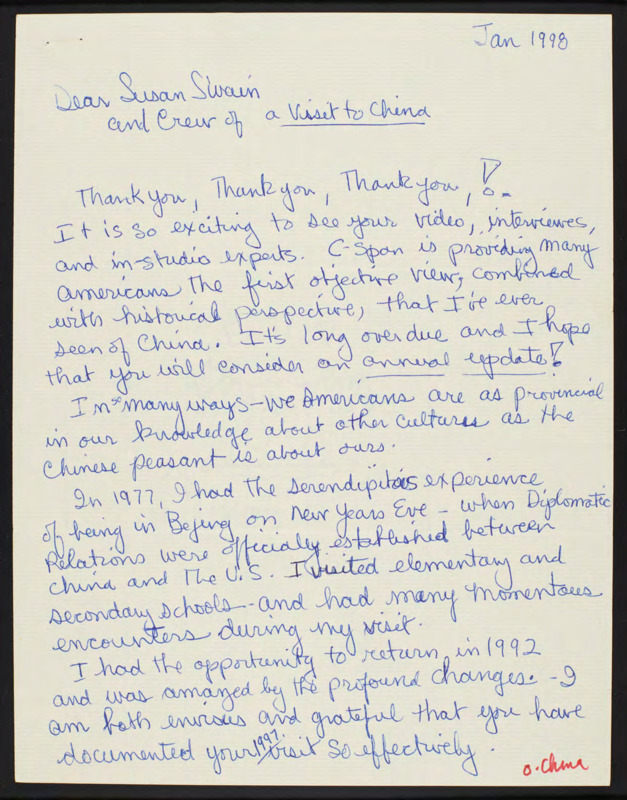 Jan 1998
Dear Susan Swain
and Crew of a Visit to China
Thank you, Thank you, Thank you, !
It is so exciting to see your video, interviewes,
and in-studio experts. C-Span is providing many
Americans the first objective view, combined
with historical perspective, that I've ever
seen of China. It's long overdue and I hope
that you will consider an annual update!
In so many ways - we Americans are as provincial
in our knowledge about other cultures as the
Chinese peasant is about ours.
In 1977, I had the serendipitous experience
of being in Bejing on New Years Eve - when Diplomatic
Relations were officially established between
China and the U.S. I visited elementary and
secondary schools - and had many momentous
encounters during my visit.
I had the opportunity to return in 1992
and was amazed by the profound changes. - I
am both envious and grateful that you have
documented your 1997 visit so effectively.
o. China